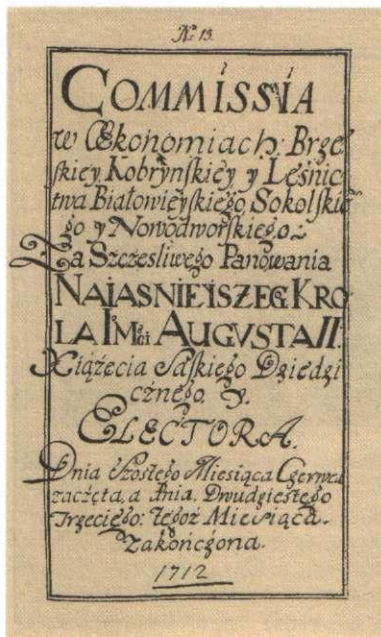 No. 13.
COMMISSIA
w Œkonomiach: Brze
skiey, Kobrynskiey y Leśnic
twa Białowieyskiego Sokolskie
go y Nowodworskiego.
Za Szczesliwego Panowania
NAIASNIEISZEGO KRO
LA IMci AUGVSTA II.
Xiążecia Saskiego Dziedzi
cznego, &.
ELECTORA.
Dnia Szostego Miesiąca Czerwca
zaczęta, a dnia Dwudziestego
Trzeciego: tegoż Miesiąca.
Zakończona.
1712